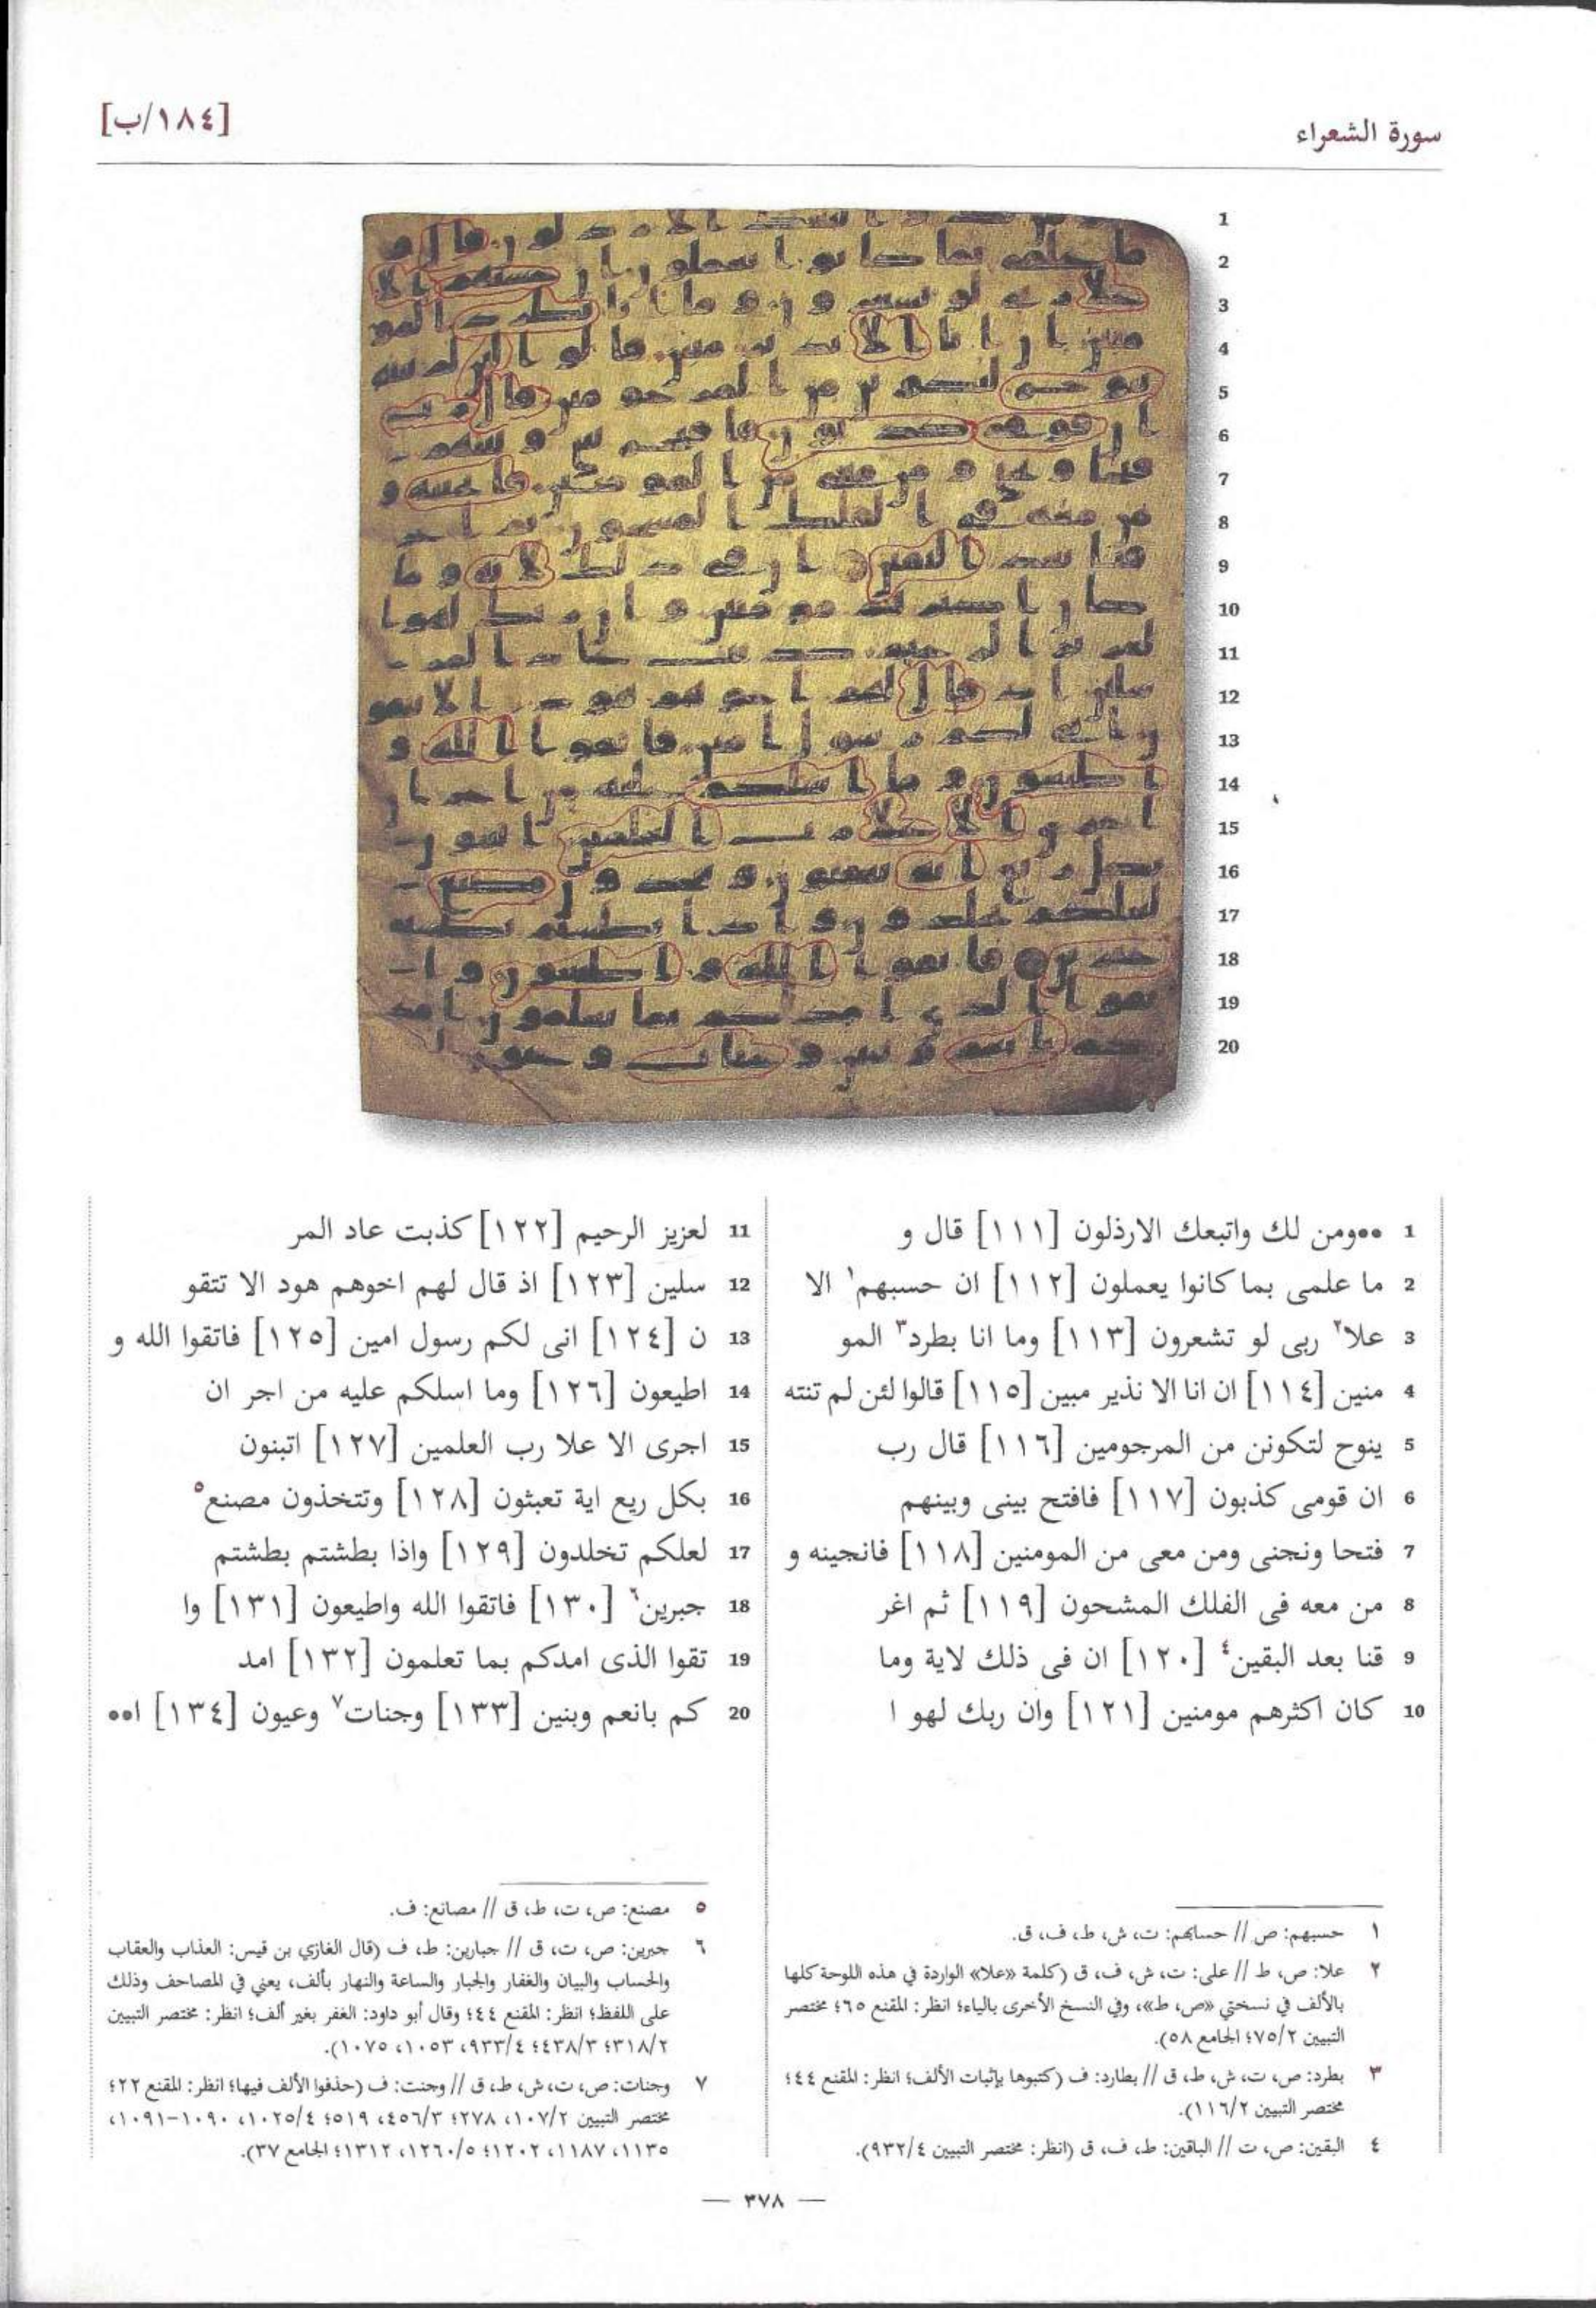 سورة الشعراء
[١٨٤/ب]
1
2
3
4
5
6
7
8
9
10
11
12
13
14
15
16
17
18
19
20
1 ●●ومن لك واتبعك الارذلون [١١١] قال و
2 ما علمى بما كانوا يعملون [١١٢] ان حسبهم١ الا
3 علا٢ ربى لو تشعرون [١١٣] وما انا بطرد٣ المو
4 منين [١١٤] ان انا الا نذير مبين [١١٥] قالوا لئن لم تنته
5 ينوح لتكونن من المرجومين [١١٦] قال رب
6 ان قومى كذبون [١١٧] فافتح بينى وبينهم
7 فتحا ونجنى ومن معى من المومنين [١١٨] فانجينه و
8 من معه فى الفلك المشحون [١١٩] ثم اغر
9 قنا بعد البقين٤ [١٢٠] ان فى ذلك لاية وما
10 كان اكثرهم مومنين [١٢١] وان ربك لهو ا
11 لعزيز الرحيم [١٢٢] كذبت عاد المر
12 سلين [١٢٣] اذ قال لهم اخوهم هود الا تتقو
13 ن [١٢٤] انى لكم رسول امين [١٢٥] فاتقوا الله و
14 اطيعون [١٢٦] وما اسلكم عليه من اجر ان
15 اجرى الا علا رب العلمين [١٢٧] اتبنون
16 بكل ريع اية تعبثون [١٢٨] وتتخذون مصنع٥
17 لعلكم تخلدون [١٢٩] واذا بطشتم بطشتم
18 جبرين٦ [١٣٠] فاتقوا الله واطيعون [١٣١] وا
19 تقوا الذى امدكم بما تعلمون [١٣٢] امد
20 كم بانعم وبنين [١٣٣] وجنات٧ وعيون [١٣٤] ا●●
١ حسبهم: ص // حسابهم: ت، ش، ط، ف، ق.
٢ علا: ص، ط // على: ت، ش، ف، ق (كلمة «علا» الواردة في هذه اللوحة كلها
بالألف في نسختي «ص، ط»، وفي النسخ الأخرى بالياء؛ انظر: المقنع ٦٥؛ مختصر
التبيين ٧٥/٢؛ الجامع ٥٨).
٣ بطرد: ص، ت، ش، ط، ق // بطارد: ف (كتبوها بإثبات الألف؛ انظر: المقنع ٤٤؛
مختصر التبيين ١١٦/٢).
٤ البقين: ص، ت // الباقين: ط، ف، ق (انظر: مختصر التبيين ٩٣٢/٤).
٥ مصنع: ص، ت، ط، ق // مصانع: ف.
٦ جبرين: ص، ت، ق // جبارين: ط، ف (قال الغازي بن قيس: العذاب والعقاب
والحساب والبيان والغفار والجبار والساعة والنهار بألف، يعني في المصاحف وذلك
على اللفظ؛ انظر: المقنع ٤٤؛ وقال أبو داود: الغفر بغير ألف؛ انظر: مختصر التبيين
٣١٨/٢؛ ٤٣٨/٣؛ ٩٣٣/٤، ١٠٥٣، ١٠٧٥).
٧ وجنات: ص، ت، ش، ط، ق // وجنت: ف (حذفوا الألف فيها؛ انظر: المقنع ٢٢؛
مختصر التبيين ١٠٧/٢، ٢٧٨؛ ٤٥٦/٣، ٥١٩؛ ١٠٢٥/٤، ١٠٩٠-١٠٩١،
١١٣٥، ١١٨٧، ١٢٠٢؛ ١٢٦٠/٥، ١٣١٢؛ الجامع ٣٧).
— ٣٧٨ —